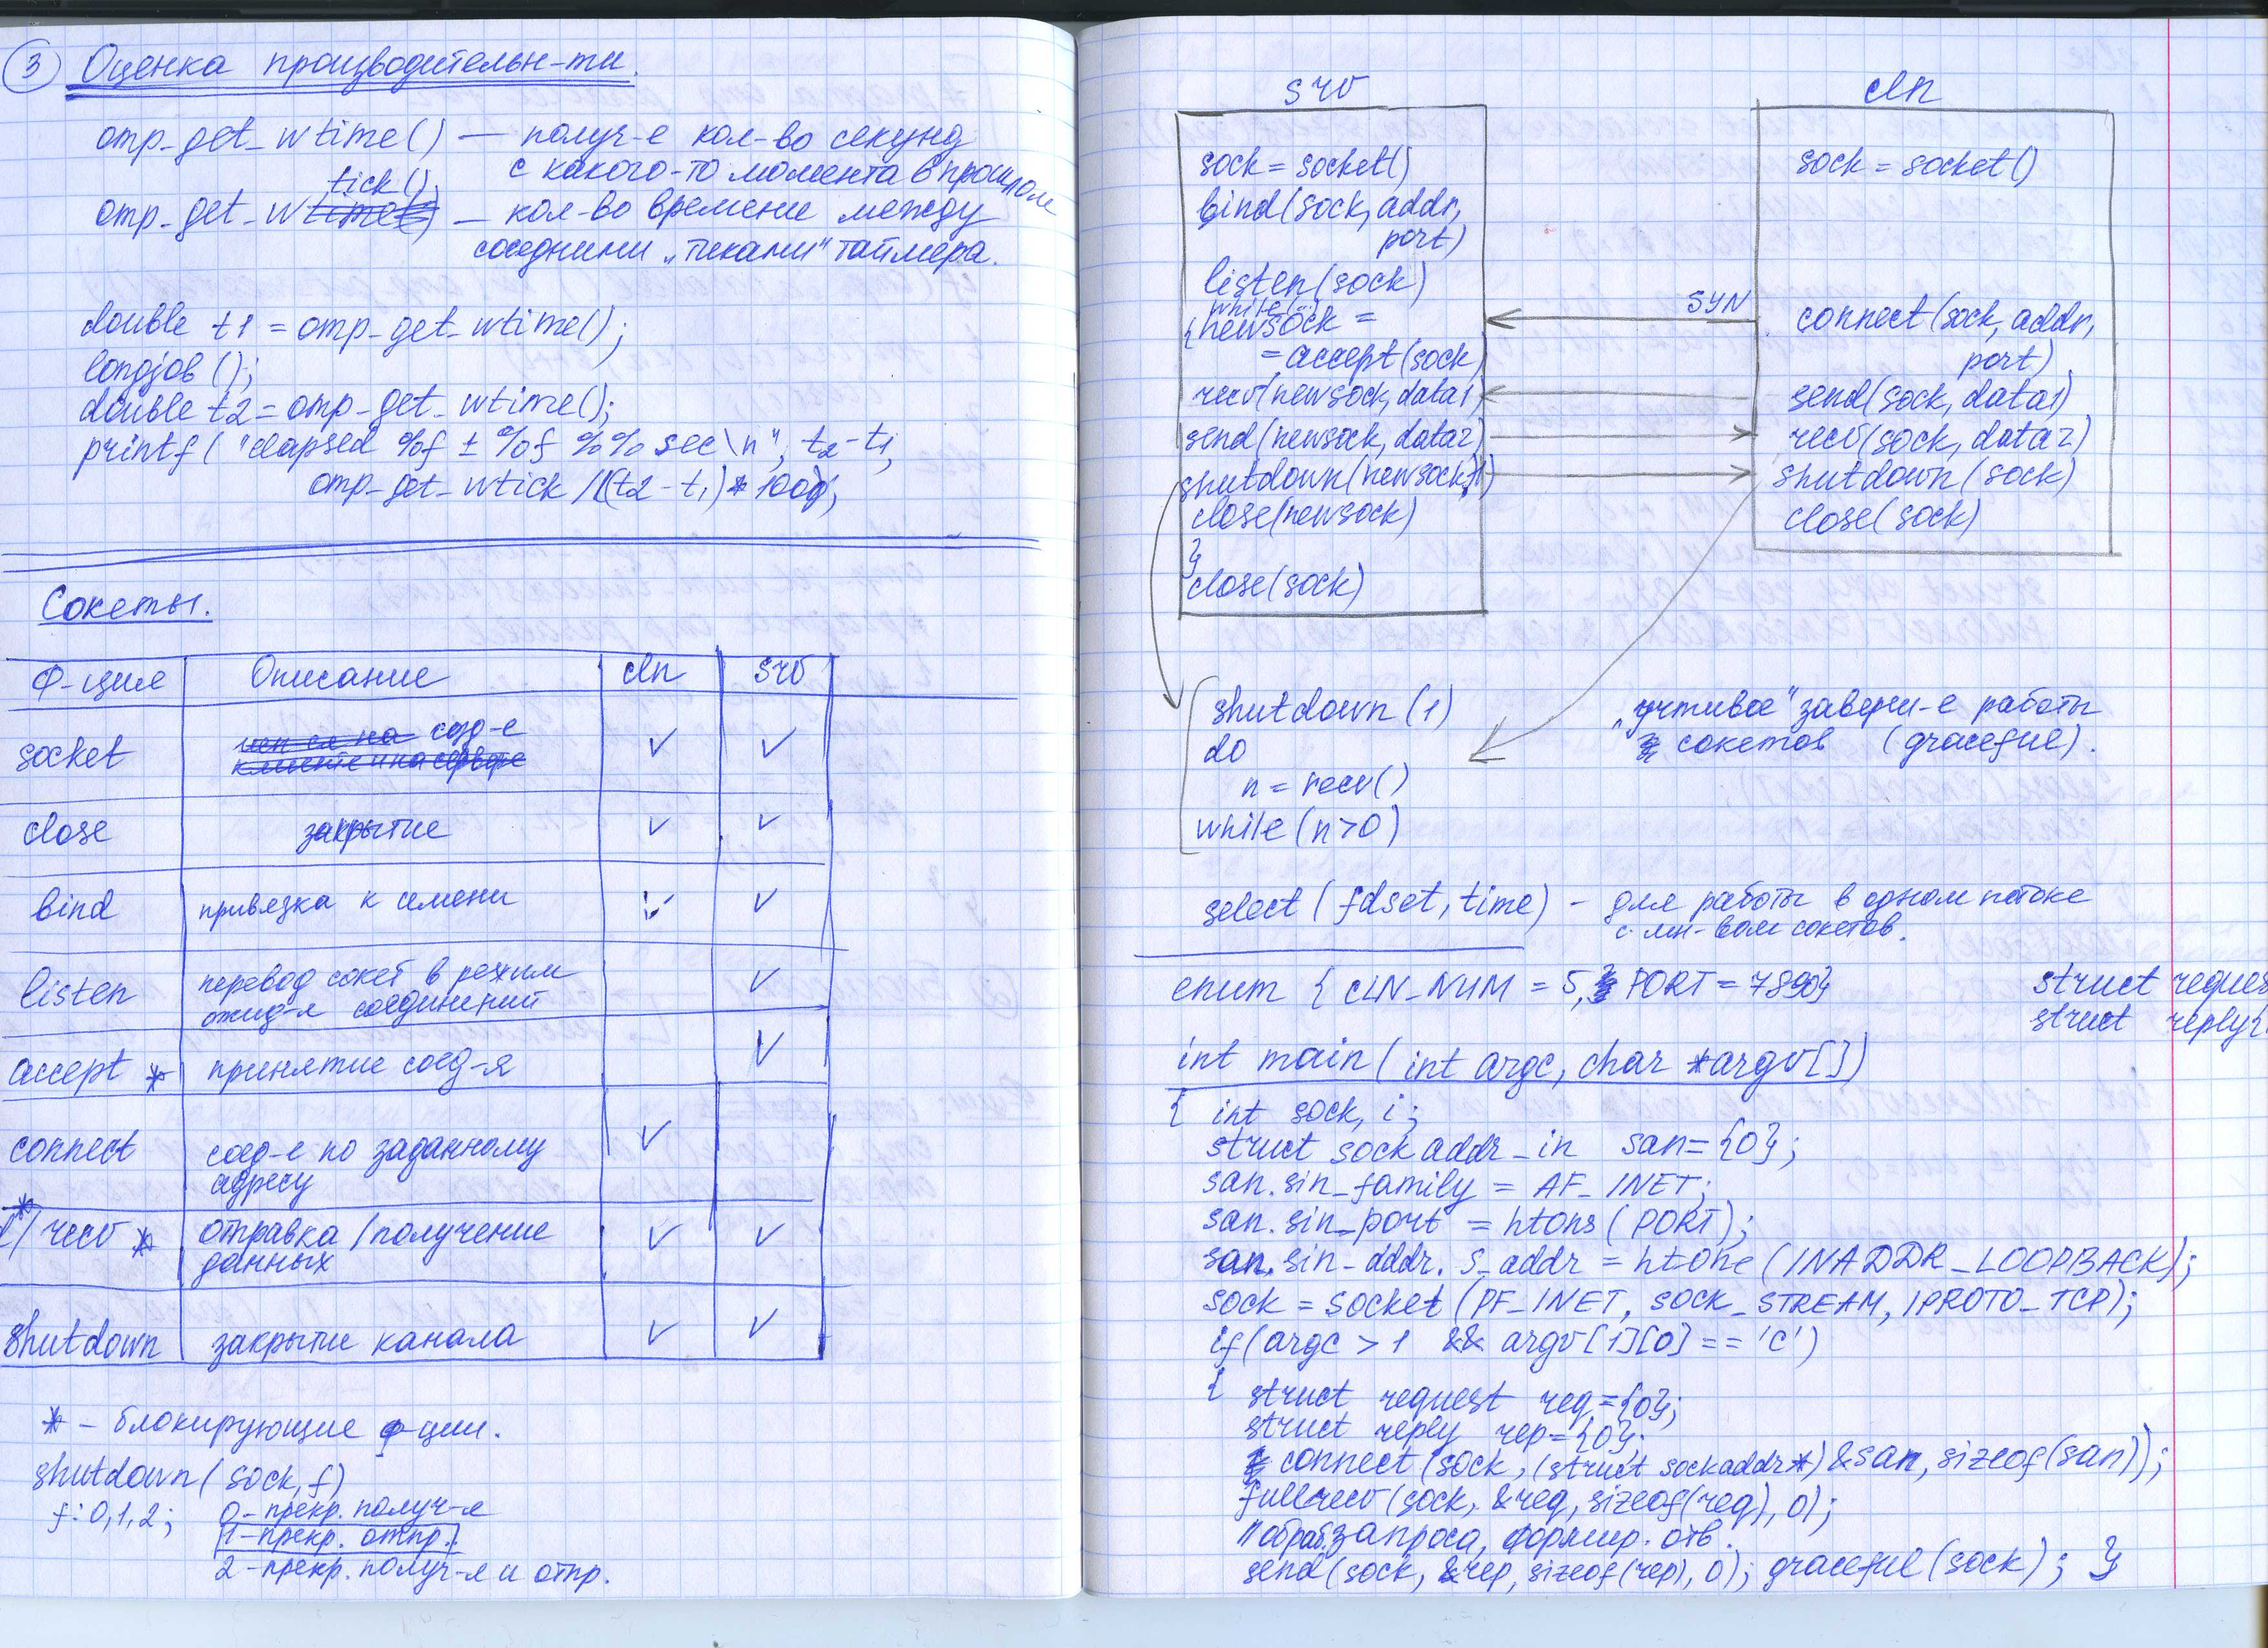 3 Оценка производительн-ти.
omp_get_wtime() — получ-е кол-во секунд
с какого-то момента в прошлом
tick()
omp_get_wtime() — кол-во времени между
соседними „тиками" таймера.
double t1 = omp_get_wtime();
longjob();
double t2 = omp_get_wtime();
printf("elapsed %f ± %f %% sec\n", t2-t1,
omp_get_wtick /((t2-t1)*100);
Сокеты.
Ф-ция Описание cln srv
socket созд-е ✓ ✓
клиенте и на сервере
close закрытие ✓ ✓
bind привязка к семени ✓ ✓
listen перевод сокет в режим ✓
ожид-я соединений
accept * принятие соед-я ✓
connect соед-е по заданному ✓
адресу
*
/recv * отправка/получение ✓ ✓
данных
shutdown закрытие канала ✓ ✓
* - блокирующие ф-ции.
shutdown(sock, f)
f: 0,1,2; 0 - прекр. получ-я
1 - прекр. отпр.
2 - прекр. получ-я и отпр.
srv
sock = socket()
bind(sock, addr,
port)
listen(sock)
while(1)
{newsock =
= accept(sock)
recv(newsock, data1)
send(newsock, data2)
shutdown(newsock,1)
close(newsock)
}
close(sock)
SYN
cln
sock = socket()
connect(sock, addr,
port)
send(sock, data1)
recv(sock, data2)
shutdown(sock)
close(sock)
shutdown(1)
do
n = recv()
while(n>0)
„учтивое" заверш-е работы
сокетов (graceful).
select(fdset, time) - для работы в одном потоке
с мн-вом сокетов.
enum { CLN_NUM = 5, PORT = 7890} struct reques
struct reply{
int main(int argc, char *argv[])
{ int sock, i;
struct sockaddr_in san={0};
san.sin_family = AF_INET;
san.sin_port = htons(PORT);
san.sin_addr.s_addr = htone(INADDR_LOOPBACK);
sock = socket(PF_INET, SOCK_STREAM, IPROTO_TCP);
if(argc > 1 && argv[1][0] == 'c')
{ struct request req={0};
struct reply rep={0};
connect(sock, (struct sockaddr*)&san, sizeof(san));
fullrecv(sock, &req, sizeof(req), 0);
//обраб. запроса, формир. отв.
send(sock, &rep, sizeof(rep), 0); graceful(sock); }